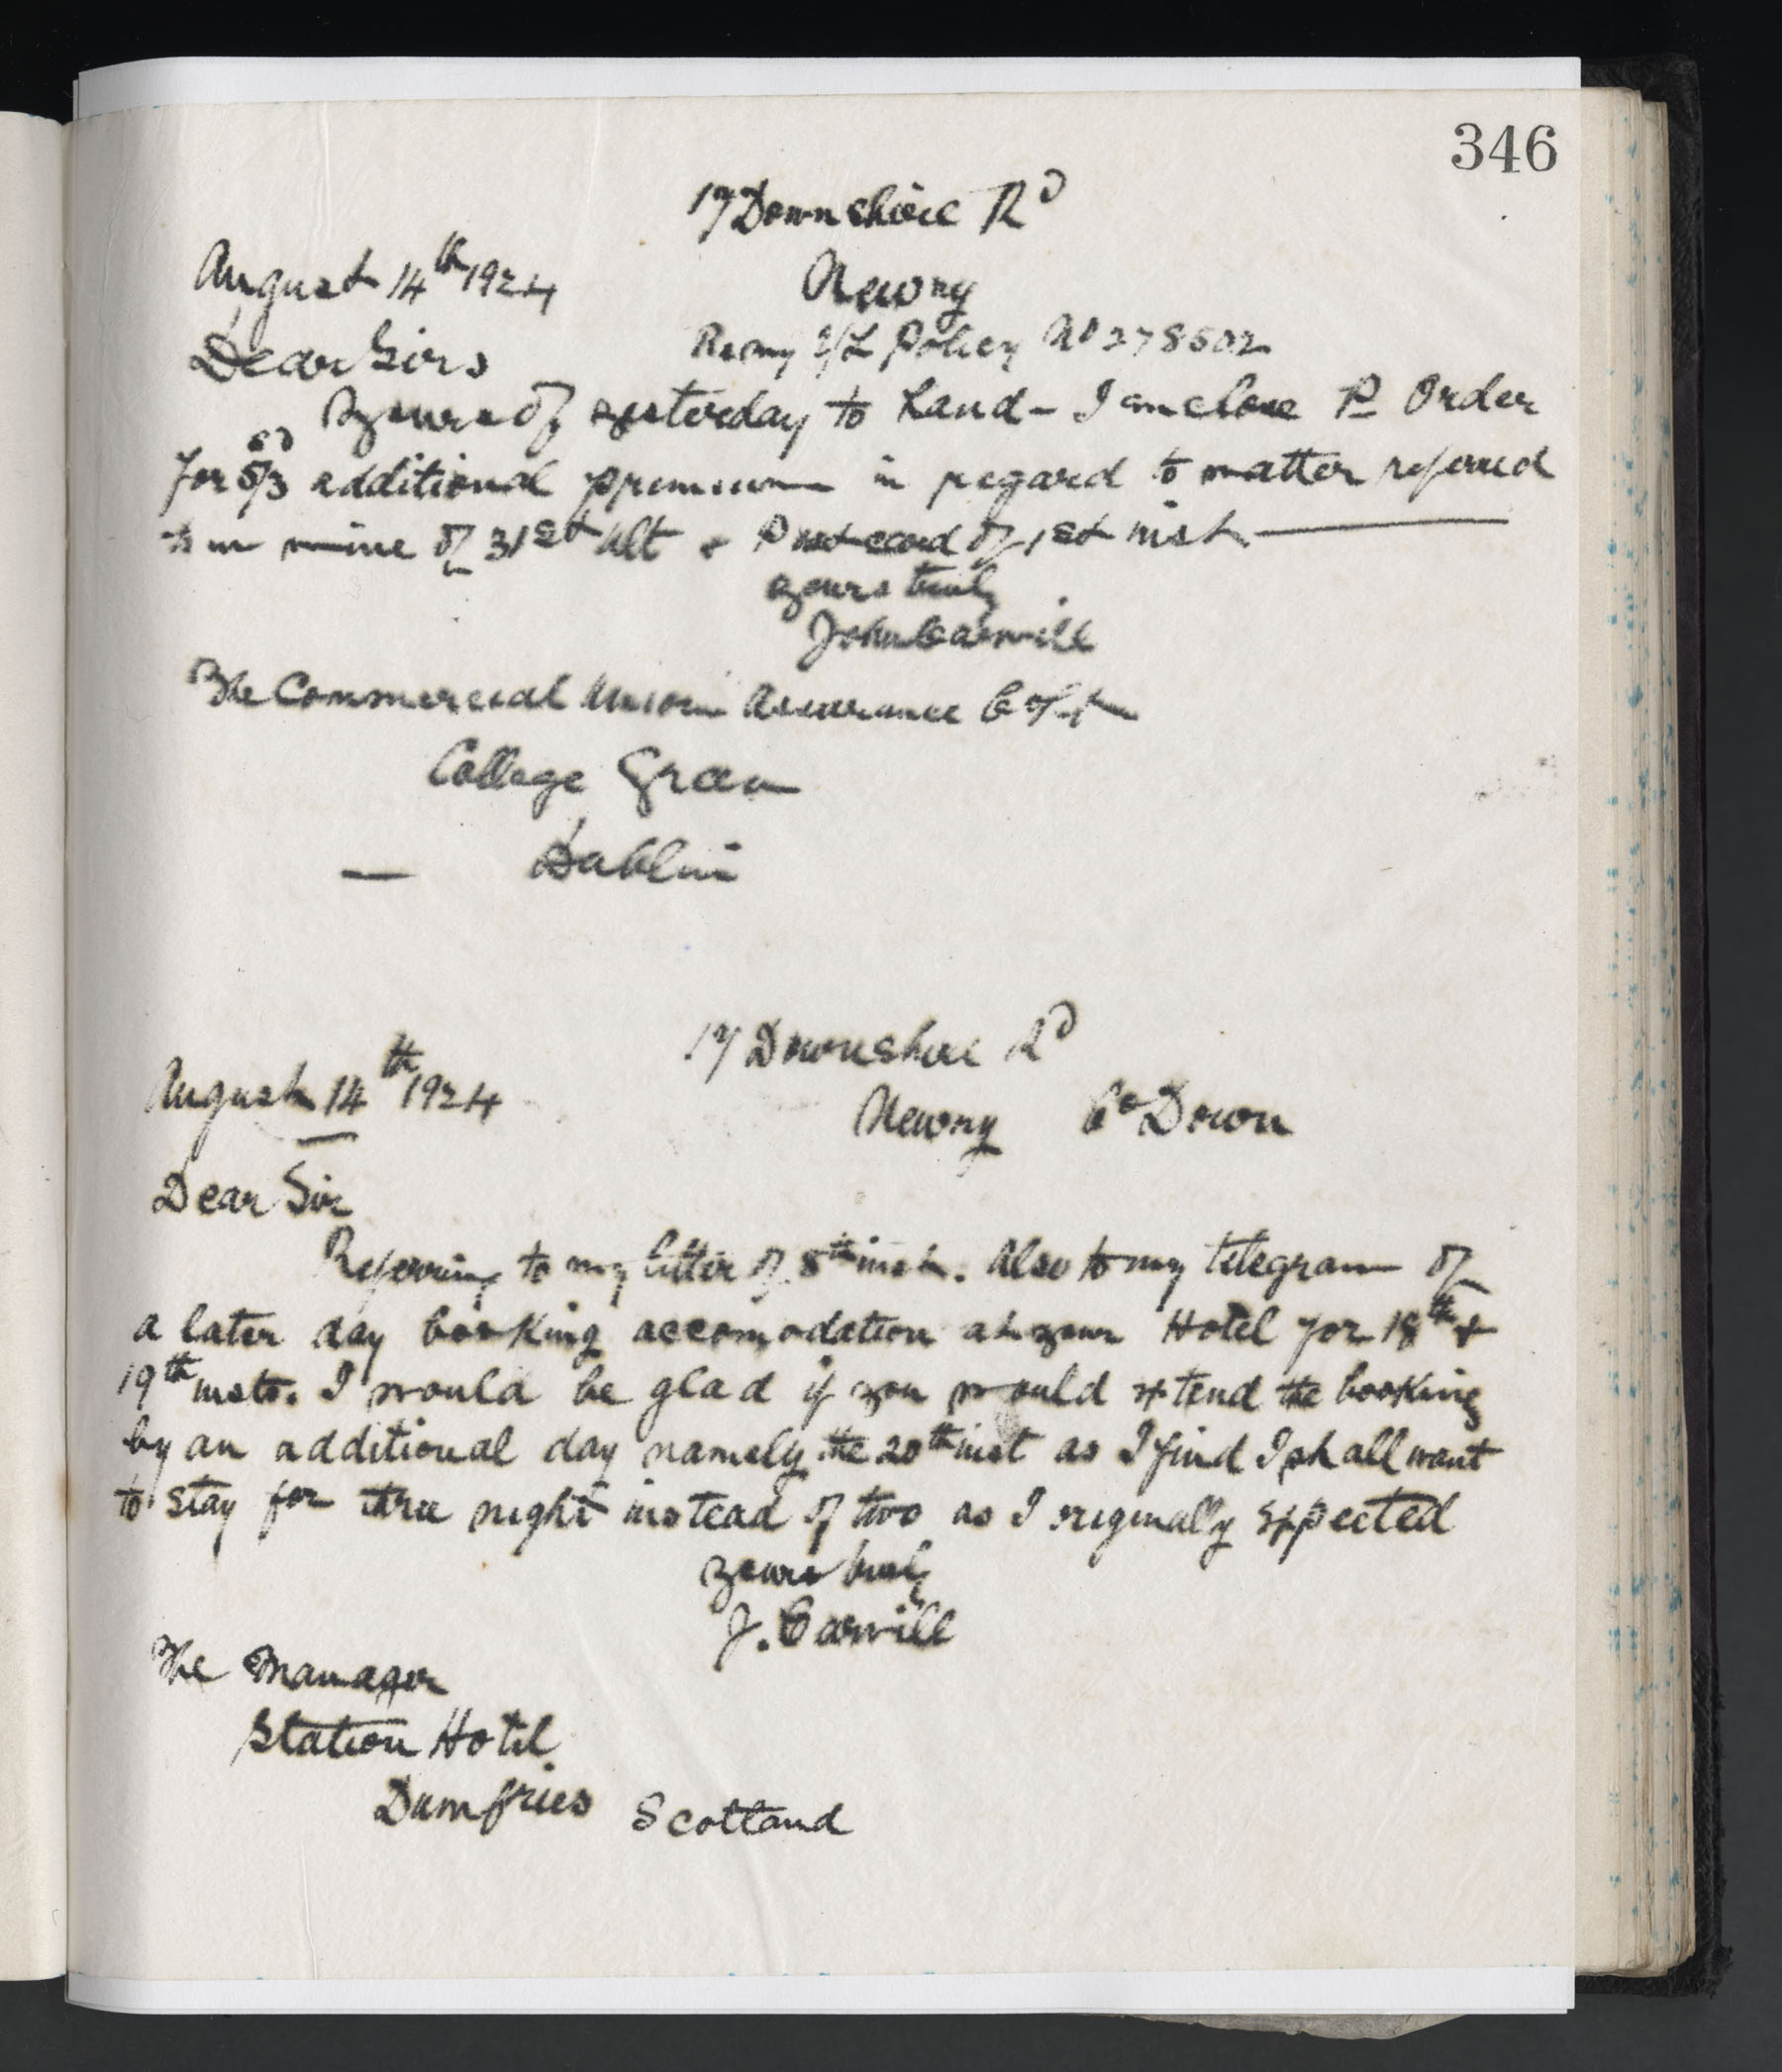 346
17 Downshire Rd
August 14th 1924 Newry
Dear Sirs Re my E/L Policy No 278502
Yours of yesterday to hand - I enclose P Order
for 5/3 additional premium in regard to matter referred
to in mine of 31st ult & Post card of 1st inst.
Yours truly
John Carvill
The Commercial Union Assurance Co Ltd
College Green
Dublin
17 Downshire Rd
August 14th 1924 Newry Co Down
Dear Sir
Referring to my letter of 8th inst. Also to my telegram of
a later day booking accomodation at your Hotel for 18th &
19th insts. I would be glad if you would extend the booking
by an additional day namely the 20th inst as I find I shall want
to stay for three night instead of two as I originally expected
Yours truly
J. Carvill
The Manager
Station Hotel
Dumfries Scotland